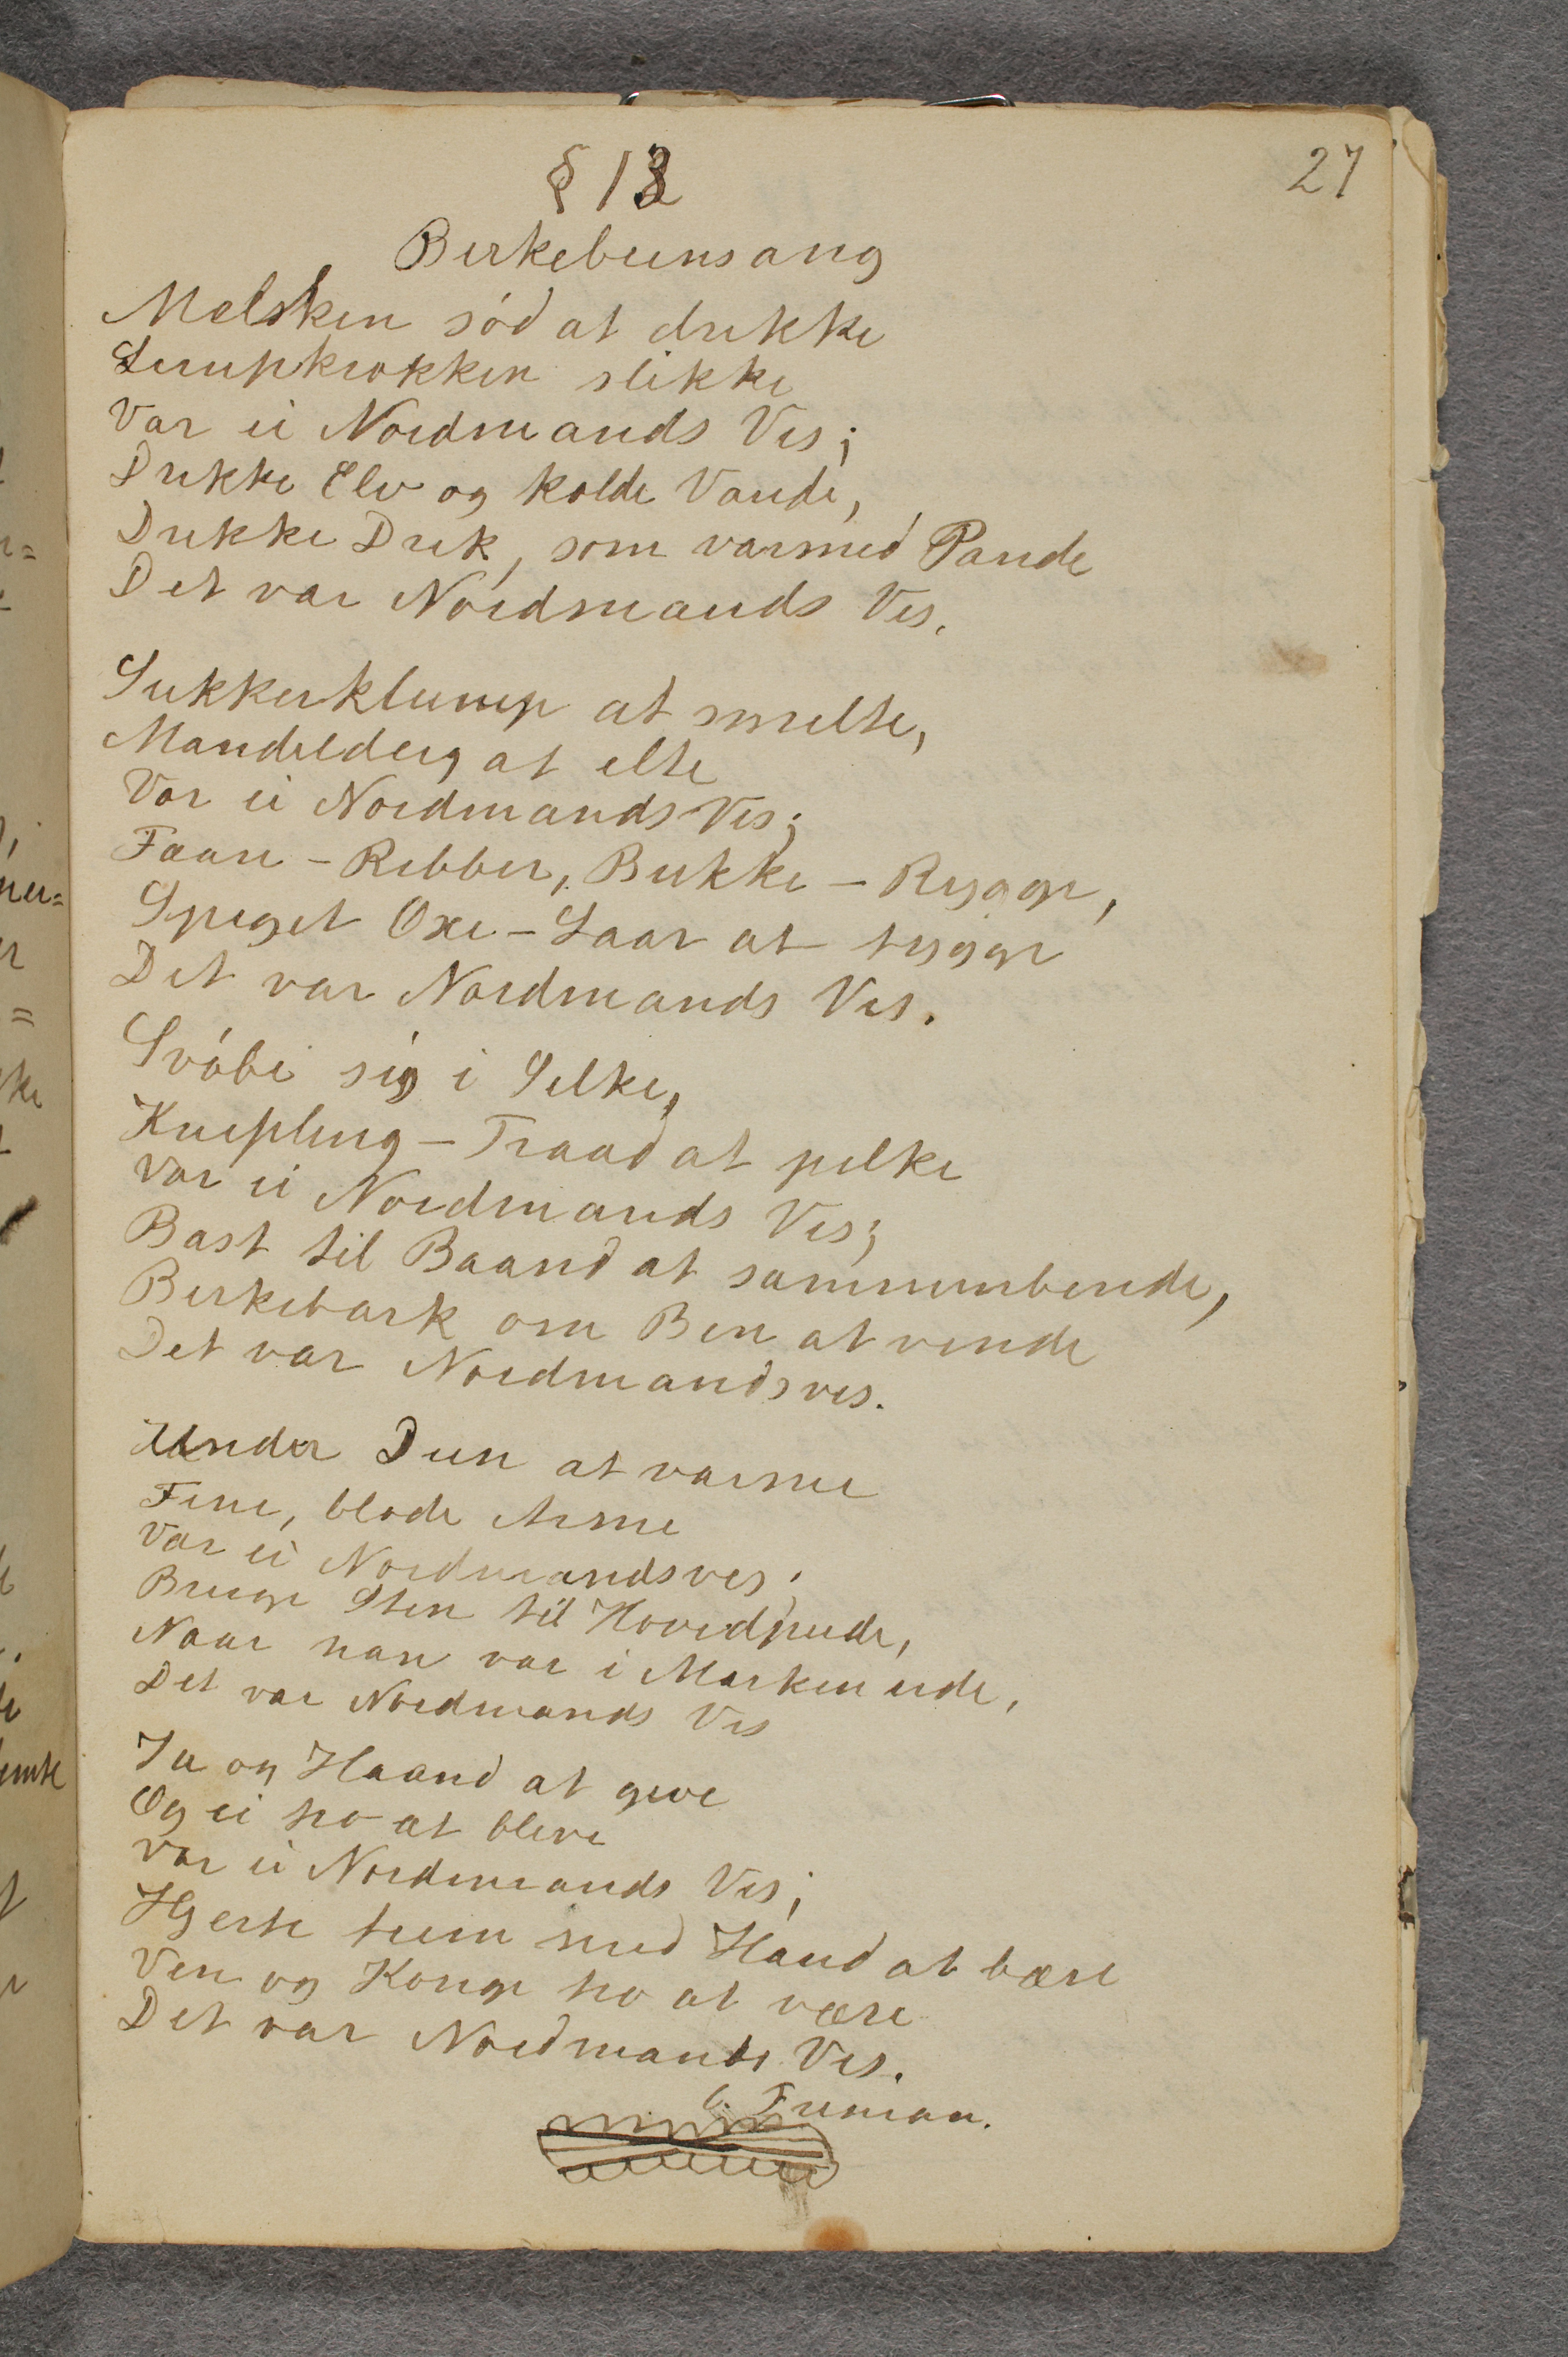 27
§ 13
Birkebeinsang
Melsken sód at drikke
Sirupkrokken slikke
Var ei Nordmands Vis;
Drikke Elv og kolde Vande,
Drikke Drik, som varmed Pande
Det var Nordmands Vis.
Sukkerklump at smelte,
Mandeldeig at elte
Var ei Nordmands Vis;
Faare - Ribber, Bukke - Rygge,
Speget Oxe - Laar at tygge
Det var Nordmands Vis.
Svóbe sig i Silke,
Knipling - Traad at pilke
Var ei Nordmands Vis;
Bast til Baand at sammenbinde,
Birkebark om Ben at vinde
Det var Nordmandsvis.
Under Dun at varme
Fine, blode Arme
Var ei Nordmandsvis;
Bruge Sten til Hovedpude,
Naar han var i Marken ude,
Det var Nordmands Vis
Ja og Haand at give
Og ei tro at blive
Var ei Nordmands Vis;
Hjerte frem med Haand at bære
Ven og Konge tro at være
Det var Nordmands Vis.
C. Friman.